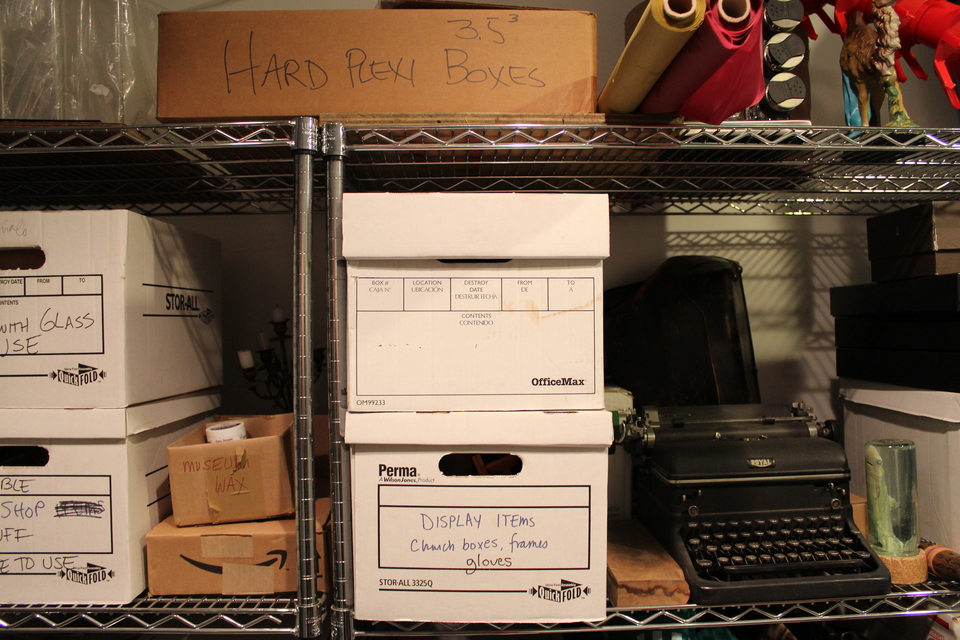 3.5³
HARD PLEXI BOXES
DESTROY DATE FROM TO
CONTENTS
WITH GLASS
USE
STOR-ALL
QuickFOLD
BLE
SHOP
UFF
E TO USE
QuickFOLD
MUSEUM
WAX
BOX # LOCATION DESTROY FROM TO
CAJA N° UBICACIÓN DATE DE A
DESTRUIR FECHA
CONTENTS
CONTENIDO
OfficeMax
OM99233
Perma
A Wilson Jones Product
DISPLAY ITEMS
Church boxes, frames
gloves
STOR-ALL 3325Q
QuickFOLD
ROYAL